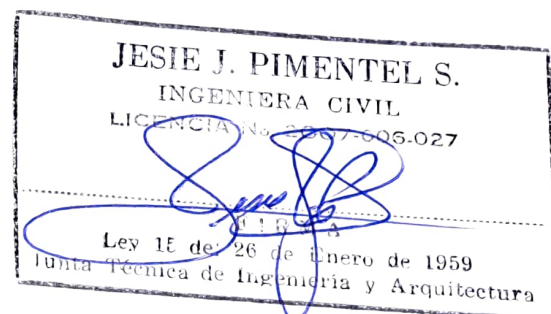 JESIE J. PIMENTEL S.
INGENIERA CIVIL
LICENCIA No. 2007-006-027
FIRMA
Ley 15 del 26 de Enero de 1959
Junta Técnica de Ingeniería y Arquitectura